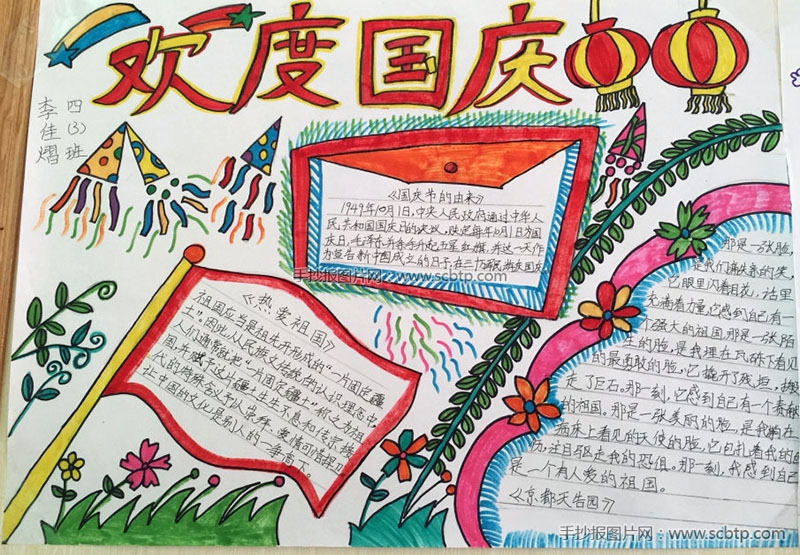 欢度国庆
四(3)班
李佳熠
《国庆节的由来》
1949年10月1日,中央人民政府通过中华人
民共和国国庆日的决议,决定每年10月1日为国
庆日,毛泽东并亲手升起五星红旗,并这一天作
为宣告新中国成立的日子,在三十万军民
《热爱祖国》
祖国应当是祖先开形成的"一片固定疆
土"。因此,人民族文传统的认识理念中,
人们通常就把"一片固定疆土"称之为祖
国,并赋予这片疆土生生不息和传宗接
代的特殊含义
让中国的文化是别人的一争高下。
那是一张脸,
是我们满头乱的笑,
它眼里闪着目花,话里
充满着力量,它感到自己有一
个强大的祖国。那是一张陌
生的脸,是我埋在瓦砾下看见
的最勇敢的脸,它搬开了残垣,
走了巨石。那一刻,它感到自己有一个
的祖国。那是一张美丽的脸,是我躺在
病床上看见的天使的脸,它包扎着我的
伤,注目驱走我的恐惧。那一刻,我感到自己
是一个有人爱的祖国。
《京都天告园》
手抄报图片网:www.scbtp.com
手抄报图片网:www.scbtp.com